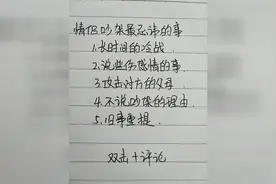 情侣吵架最忌讳的事
1.长时间的冷战
2.说些伤感情的事.
3.攻击对方的父母
4.不说吵架的理由.
5.旧事重提.
双击+评论